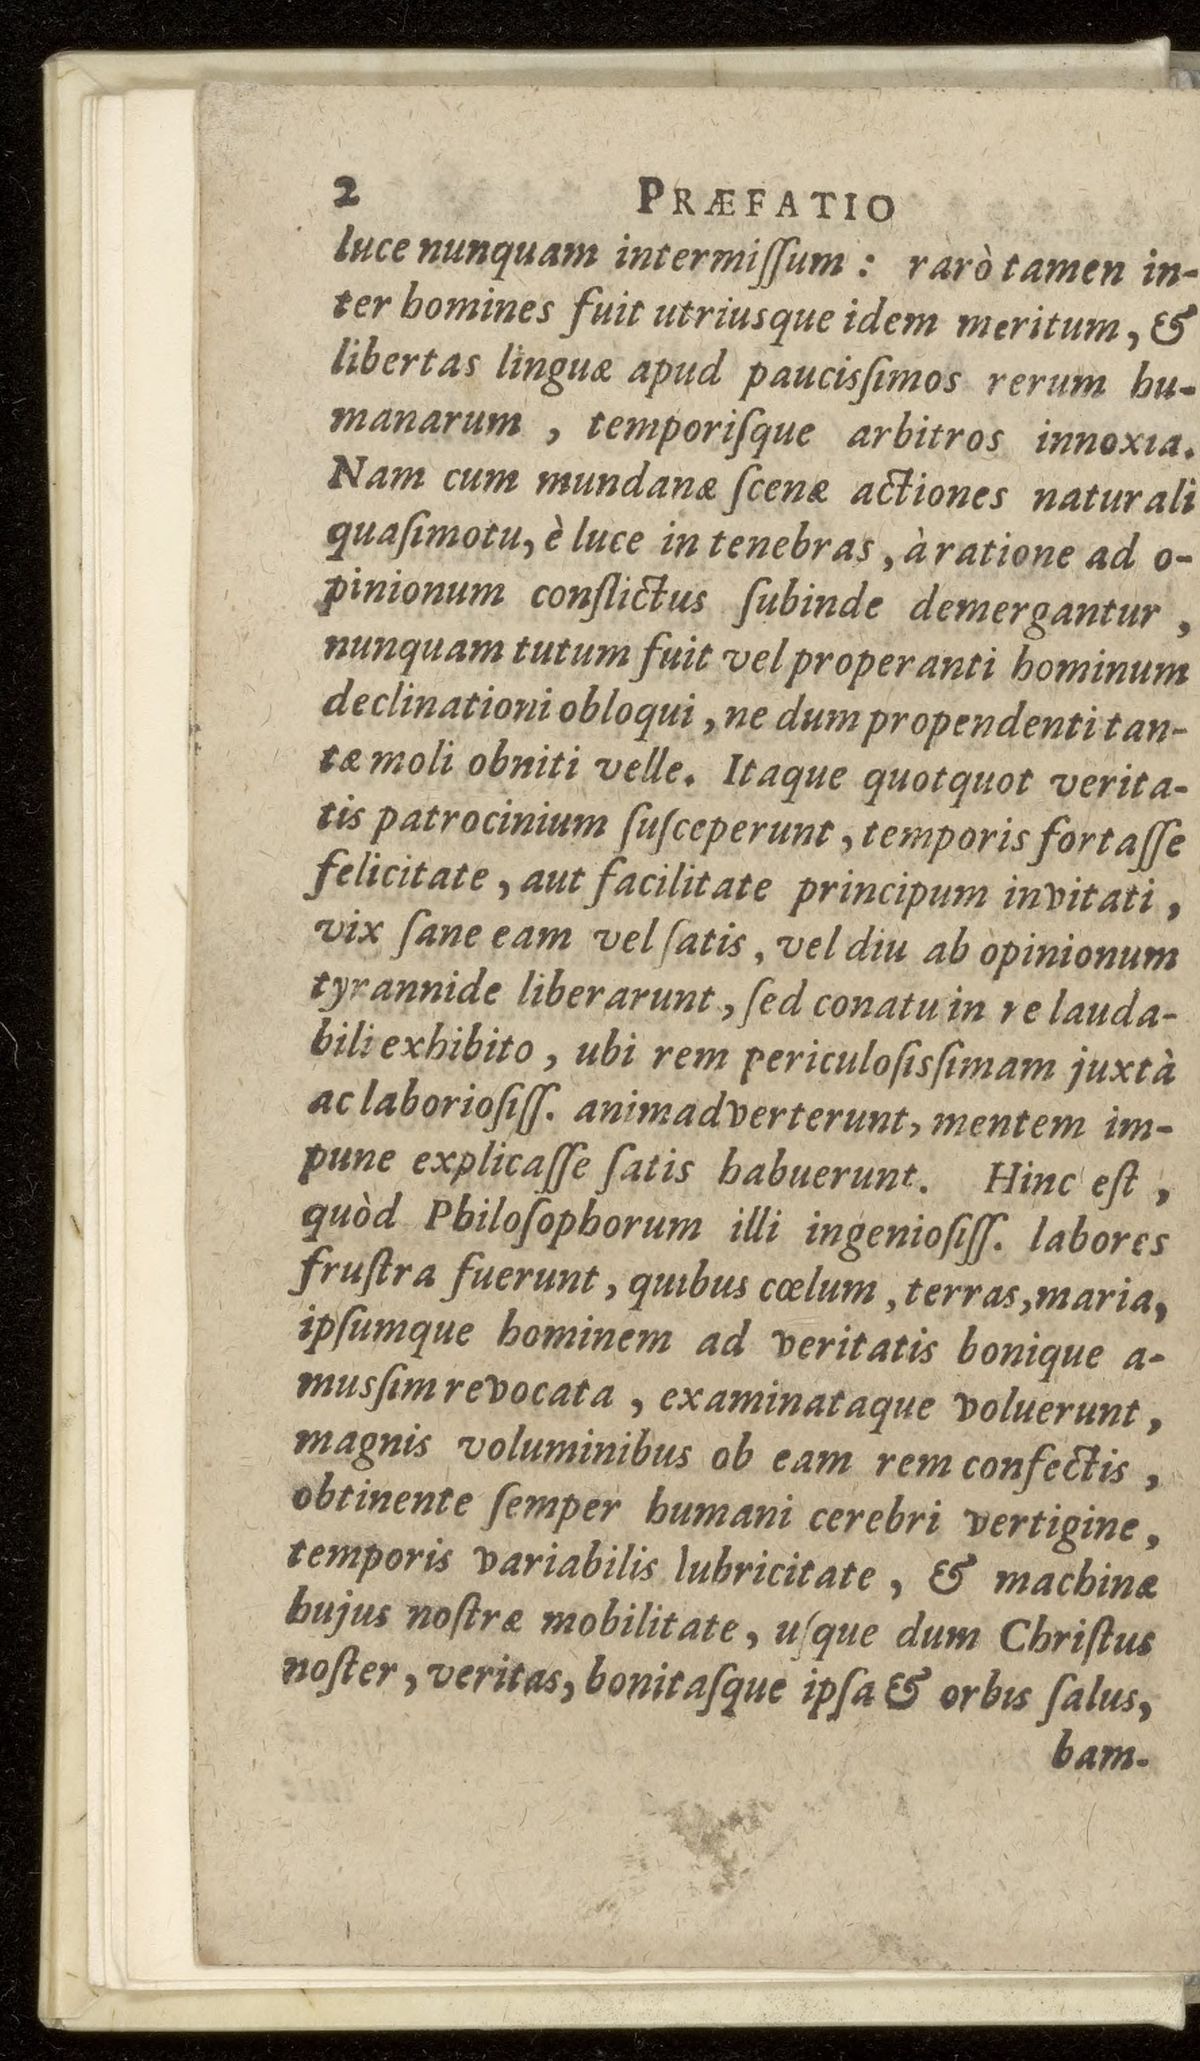 2 PRÆFATIO
luce nunquam intermiſſum : rarò tamen in-
ter homines fuit utriusque idem meritum, &
libertas linguæ apud paucisſimos rerum hu-
manarum , temporiſque arbitros innoxia.
Nam cum mundanæ ſcenæ actiones naturali
quaſimotu, è luce in tenebras , à ratione ad o-
pinionum conflictus ſubinde demergantur ,
nunquam tutum fuit vel properanti hominum
declinationi obloqui , ne dum propendenti tan-
tæ moli obniti velle. Itaque quotquot verita-
tis patrocinium ſuſceperunt , temporis fortaſſe
felicitate , aut facilitate principum invitati ,
vix ſane eam vel ſatis , vel diu ab opinionum
tyrannide liberarunt , ſed conatu in re lauda-
bili exhibito , ubi rem periculoſisſimam juxtà
ac laborioſiſſ. animadverterunt, mentem im-
pune explicaſſe ſatis habuerunt. Hinc eſt ,
quòd Philoſophorum illi ingenioſiſſ. labores
fruſtra fuerunt , quibus cœlum , terras, maria,
ipſumque hominem ad veritatis bonique a-
musſim revocata , examinataque voluerunt ,
magnis voluminibus ob eam rem confectis ,
obtinente ſemper humani cerebri vertigine ,
temporis variabilis lubricitate , & machinæ
hujus noſtræ mobilitate, uſque dum Chriſtus
noſter , veritas, bonitaſque ipſa & orbis ſalus,
ham-